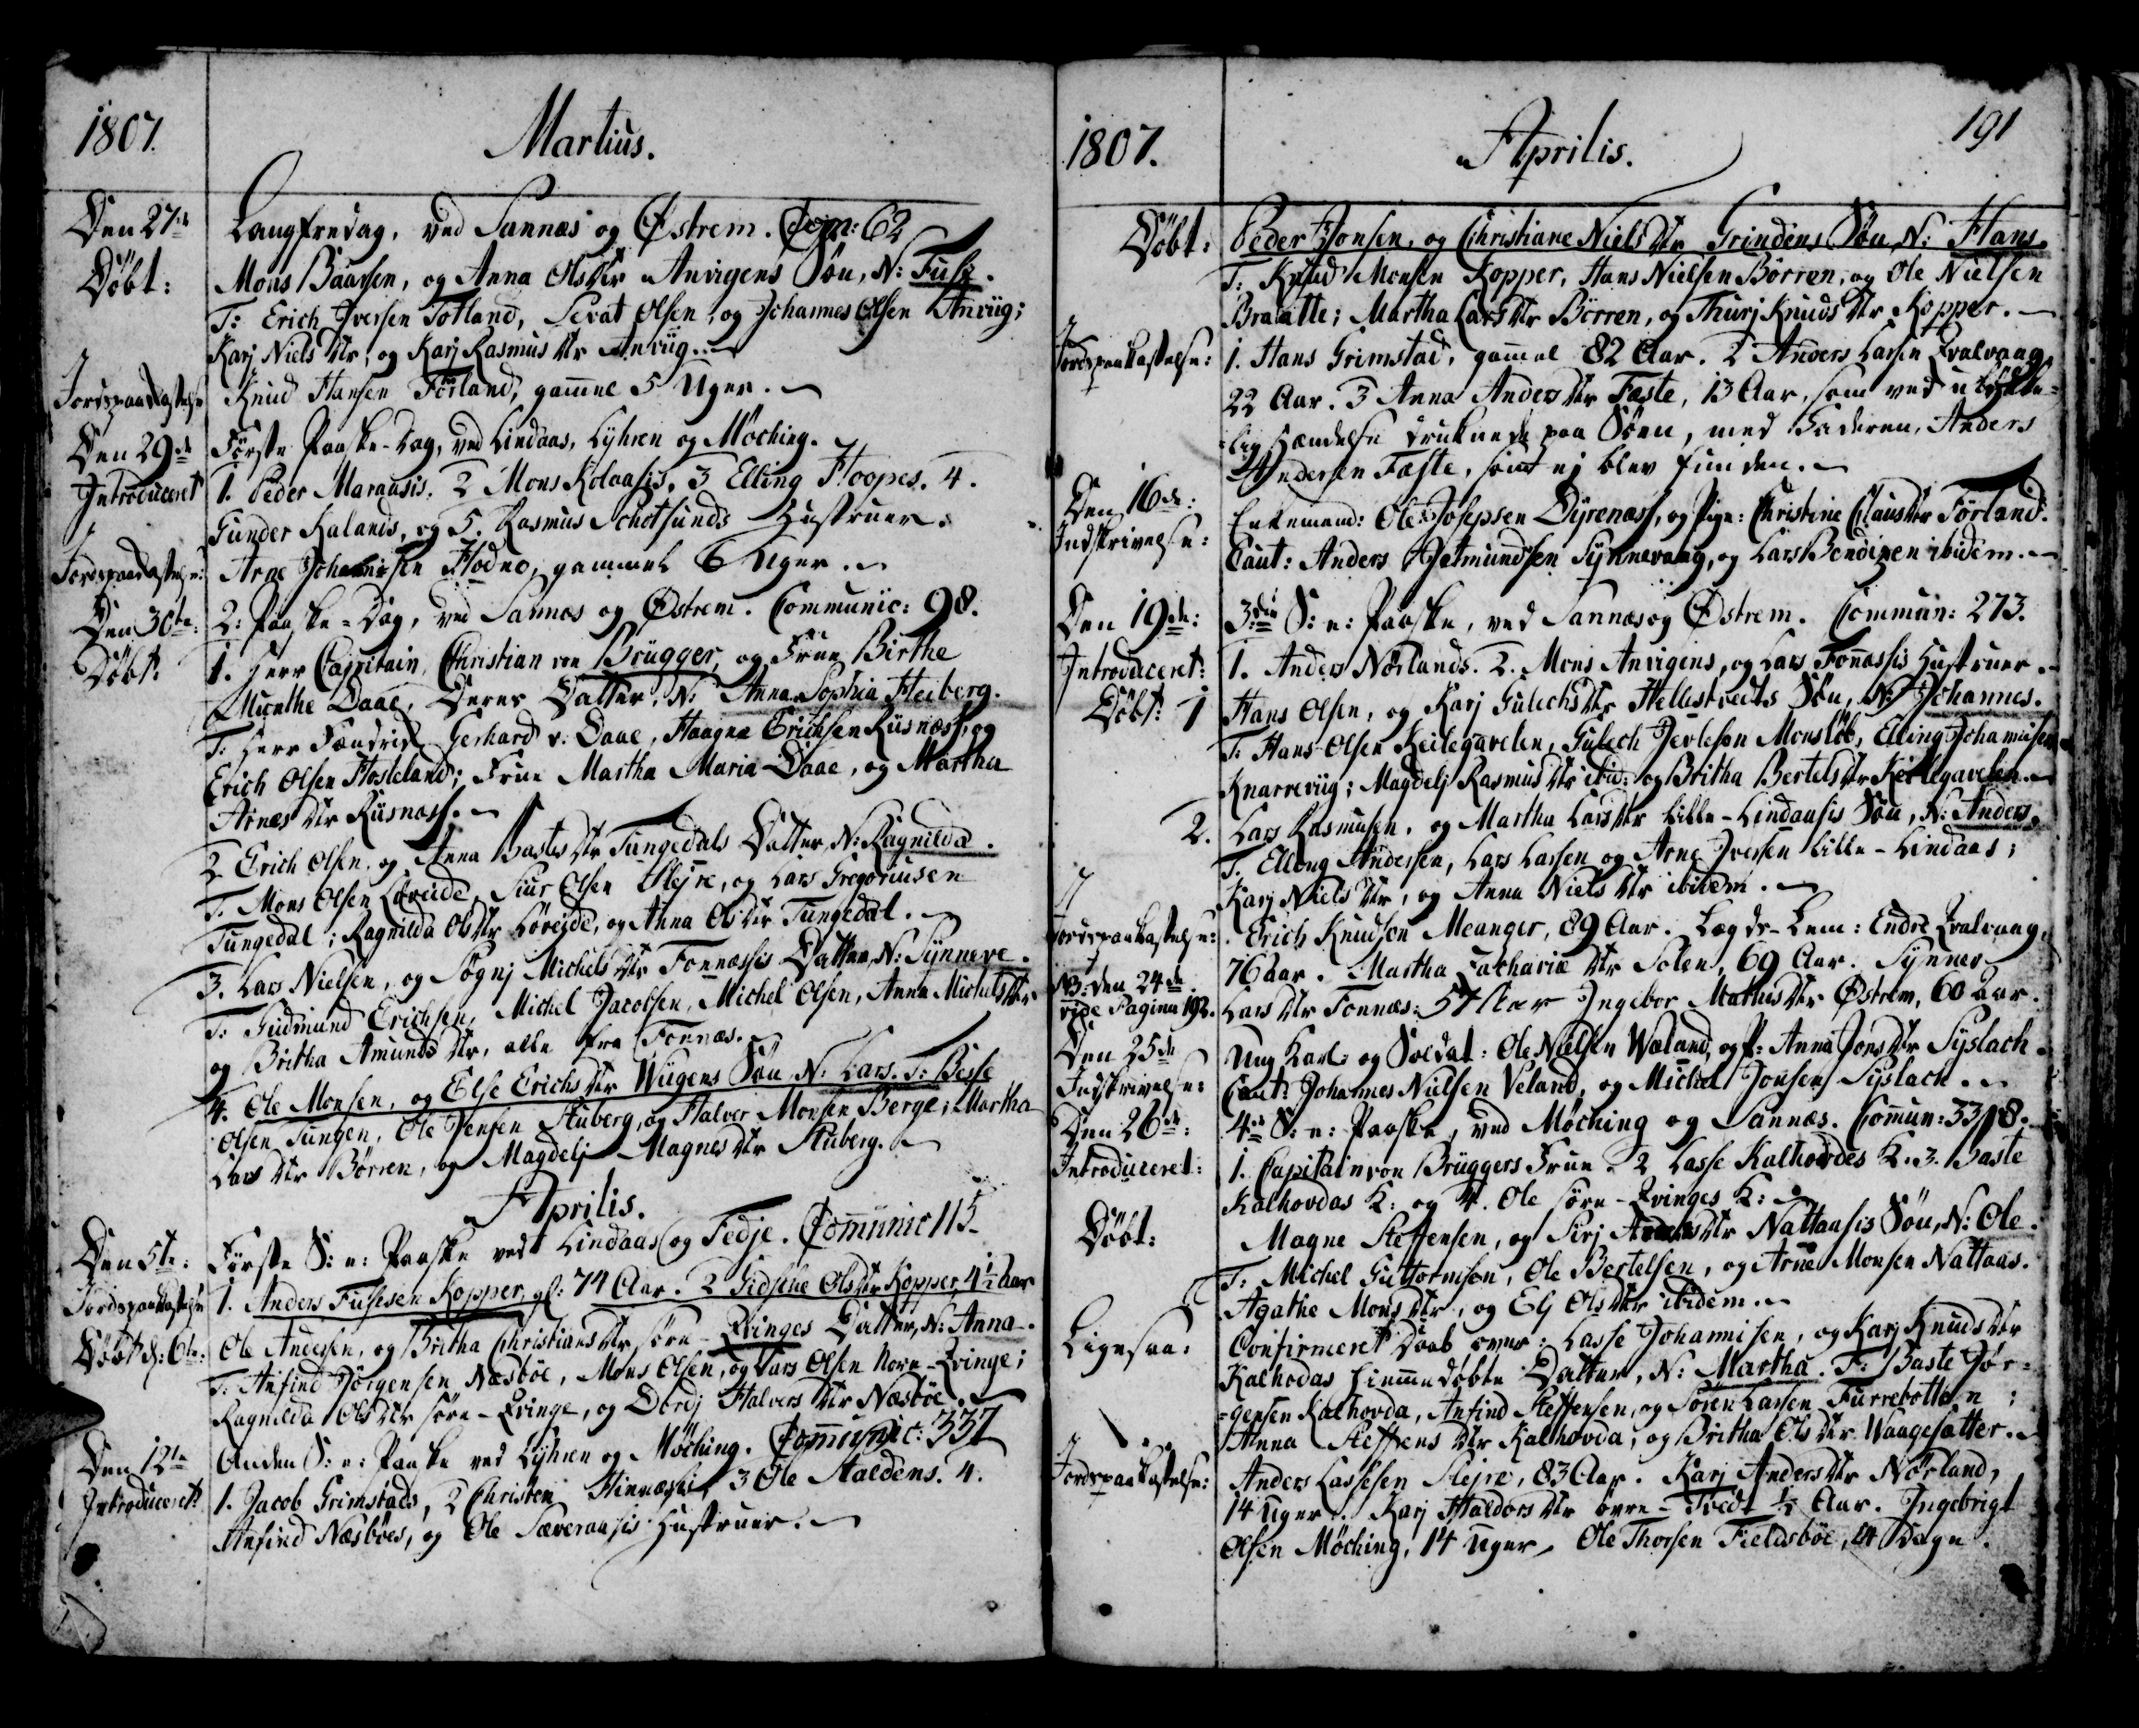 1807. Martius.
Den 27de Langfredag, ved Sannæs og Østrem. Com: 62
Døbt: Mons Baarsen, og Anna Olsdtr Anvigens Søn, N: Fusse.
T: Erich Iversen Totland, Sevat Olsen, og Johannes Olsen Anviig;
Karj Nielsdtr, og Karj Rasmusdtr Anviig.
Jordspaakastelse Knud Hansen Førland, gammel 5 Uger.
Den 29de Første Paaske-Dag, ved Lindaas, Lyhren og Møching.
Introduceret 1. Peder Maraasis. 2 Mons Kolaasis, 3 Elling Hoopes. 4.
Gunder Kalands, og 5. Rasmus Schotsunds Hustruer.
Jordspaakastelse: Arne Johannissen Hodne, gammel 6 Uger.
Den 30te: 2: Paaske-Dag, ved Sannæs og Østrem. Communic: 98.
Døbt: 1. Herr Capitain Christian von Brügger, og Frue Birthe
Munthe Daae, Deres Datter, N: Anna Sophia Heiberg.
T: Herr Fændrik Gerhard v. Daae, Haagne Erichsen Risnæss, og
Erich Olsen Hosteland; Frue Martha Maria Daae, og Martha
Arnesdtr Risnæss.
2 Erich Olsen, og Anna Bastesdtr Tungedals Datter, N: Ragnilda.
T. Mons Olsen Løveide, Siur Olsen Slejre, og Lars Gregoriusen
Tungedal; Ragnilda Olsdtr Løvejde, og Anna Olsdtr Tungedal.
3. Lars Nielsen, og Søgnj Michelsdtr Fonnæssis Datter, N: Synneve.
T: Gudmund Erichsen, Michel Jacobsen, Michel Olsen, Anna Michelsdtr
og Britha Amundsdtr, alle fra Fonnæs.
4. Ole Monsen, og Else Erichsdtr Wiigens Søn N: Lars. T: Besse
Olsen Tungen, Ole Jensen Stuberg, og Halver Monsen Berge; Martha
Larsdtr Børren, og Magdelj Magnesdtr Stuberg.
Aprilis.
Den 5te: Første S: e: Paaske ved Lindaas og Fedje. Communic 115
Jordspaakastelse 1. Anders Fussesen Kopper, gl: 74 Aar. 2 Gidsche Olsdtr Kopper, 4½ Aar
Døbt d: 6te: Ole Andersen, og Britha Christiansdtr søre-Qvinges Datter, N: Anna.
T: Anfind Jørgensen Næsbøe, Mons Olsen, og Lars Olsen Nore-Qvinge;
Ragnilda Olsdtr søre-Qvinge, og Dordj Halversdtr Næsbøe.
Den 12te Anden S: e: Paaske ved Lyhren og Møching. Communic: 337
Introduceret: 1. Jacob Grimstads, 2 Christen Hinnæsis, 3 Ole Staldens. 4.
Anfind Næsbøes, og Ole Sæveraasis Hustruer.
1807. Aprilis. 191
Døbt: Peder Jonsen, og Christiane Nielsdtr Grindens Søn, N: Hans.
T: Knud Monsen Kopper, Hans Nielsen Børren, og Ole Nielsen
Braatte; Martha Larsdtr Børren, og Thurj Knudsdtr Kopper.
Jordspaakastelse: 1. Hans Grimstad, gammel 82 Aar. 2 Anders Larsen Qvalvaag
22 Aar. 3 Anna Andersdtr Fæste, 13 Aar, som ved ulykke-
lig Hændelse druknede paa Søen, med Faderen, Anders
Andersen Fæste, som ej blev funden.
Den 16de: Enkemand: Ole Josepsen Dyrenæss, og Pige: Christine Clausdtr Førland.
Indskrivelse: Caut: Anders Jetmundsen Synnevaag, og Lars Bendixen ibidem.
Den 19de: 3die S: e: Paaske, ved Sannæs og Østrem. Commun: 273.
Introduceret: 1. Anders Nørlands. 2. Mons Anvigens, og Lars Fonnæssis Hustruer.
Døbt: 1 Hans Olsen, og Karj Gulechsdtr Hellestvedts Søn, N: Johannes.
T: Hans Olsen Keilegavelen, Gulech Jevlesen Monsløb, Elling Johannissen
Knarreviig; Magdelj Rasmusdtr ibid: og Britha Bertelsdtr Keilegavelen.
2. Lars Rasmusen, og Martha Larsdtr Lille-Lindaasis Søn, N: Anders.
T. Elling Andersen, Lars Larsen og Arne Iversen Lille-Lindaas;
Karj Nielsdtr, og Anna Nielsdtr ibidem.
Jordspaakastelse: Erich Knudsen Meanger, 89 Aar. Lægds-Lem: Endre Qvalvaag,
76 Aar. Martha Zachariædtr Solen, 69 Aar. Synnev
NB: den 24de vide Pagina 192. Larsdtr Fonnæs: 57 Aar Ingebor Mathisdtr Østrem, 60 Aar.
Den 25de Ung Karl og Soldat: Ole Nielsen Wæland, og P: Anna Jonsdtr Syslach.
Indskrivelse: Caut: Johannes Nielsen Veland, og Michel Jonsen Syslach.
Den 26de: 4de S: e: Paaske, ved Møching og Sannæs. Commun: 338.
Introduceret: 1. Capitain von Brüggers Frue. 2 Lasse Kalhovdes K. 3. Baste
Kalhovdas K: og 4. Ole søre-Qvinges K:
Døbt: Magne Steffensen, og Sirj dtr Nattaasis Søn, N: Ole.
T: Michel Guttormsen, Ole Bertelsen, og Arne Monsen Nattaas.
Agathe Monsdtr, og Elj Olsdtr ibidem.
Ligesaa: Confirmeret Daab over: Lasse Johannisen, og Karj Knudsdtr
Kalhodas hiemmedøbte Datter, N: Martha. T: Baste Jør-
gensen Kalhovda, Anfind Steffensen, og Søren Larsen Furrebotten:
Anna Steffensdtr Kalhovda, og Britha Olsdtr Waagesætter.
Jordspaakastelse: Anders Lassesen Slejre, 83 Aar. Karj Andersdtr Nørland,
14 Uger. Karj Haldorsdtr øvre-Tved ½ Aar. Ingebrigt
Olsen Møching, 14 Uger, Ole Thorsen Fieldsbøe, 14 Dage.